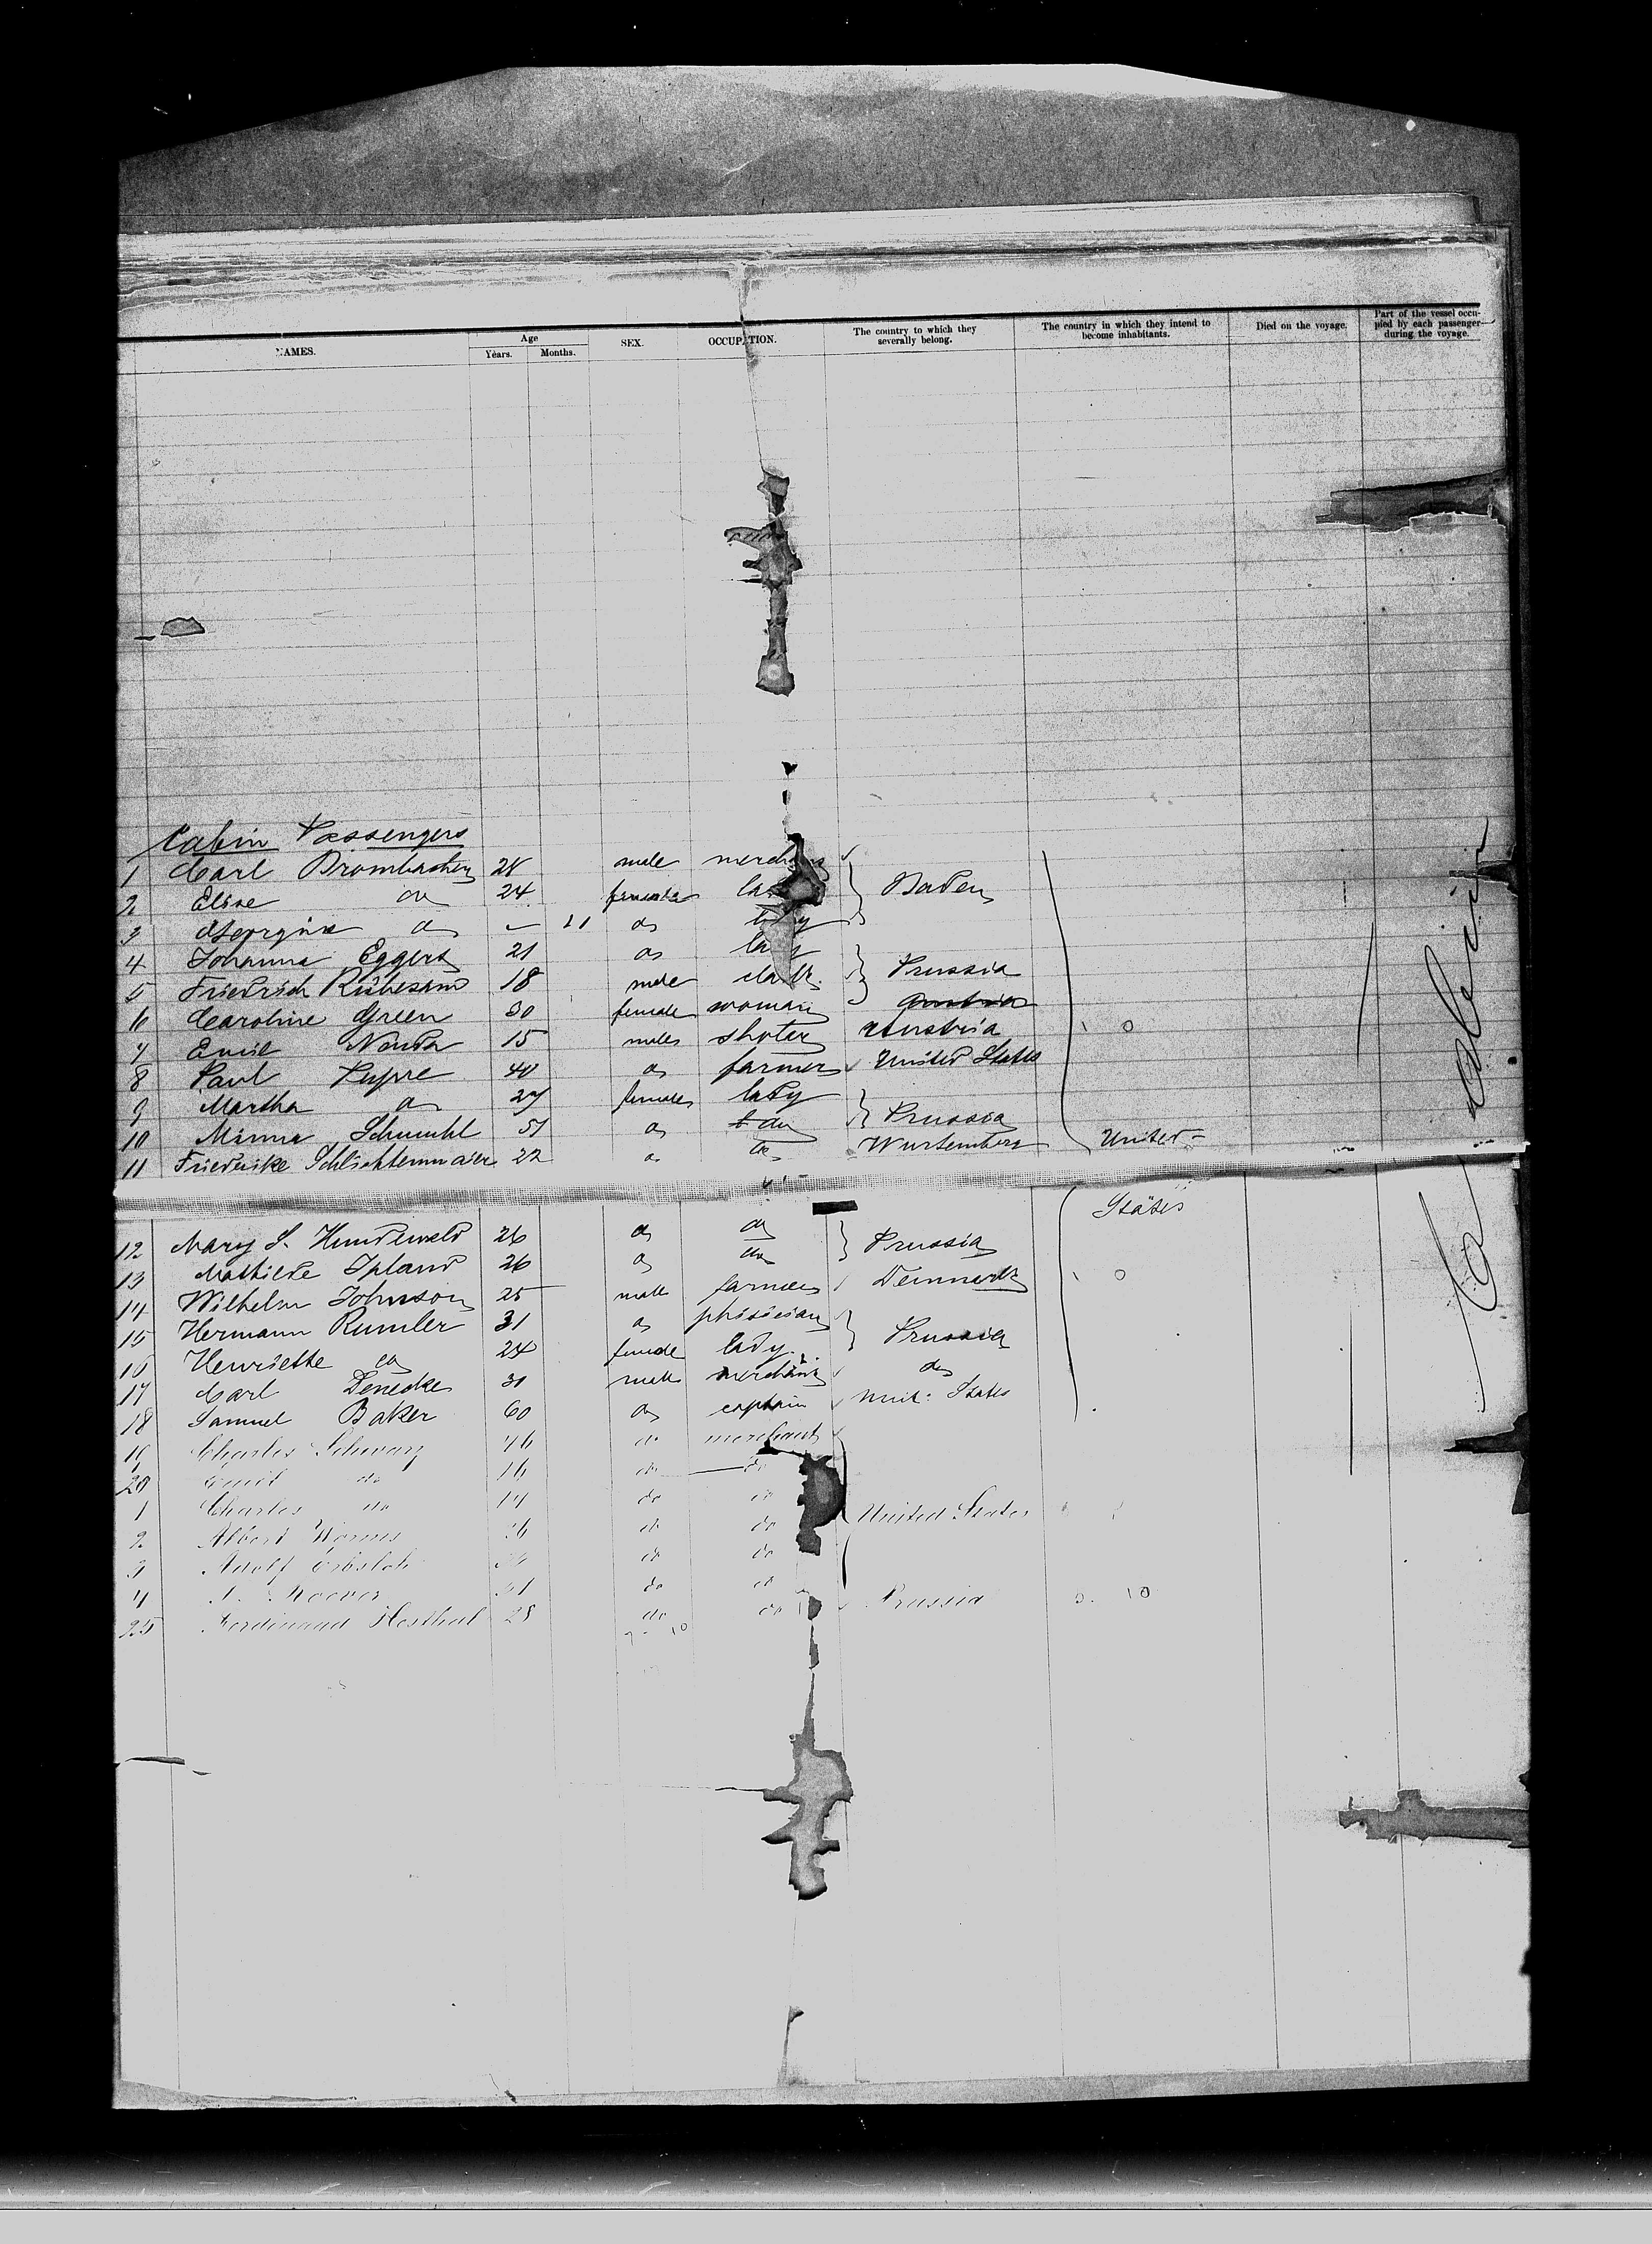 NAMES. Age Years. Months. SEX. OCCUPATION. The country to which they severally belong. The country in which they intend to become inhabitants. Died on the voyage. Part of the vessel occupied by each passenger during the voyage.
Cabin Passengers
1 Carl Brombacher 28 male merchant
2 Elise do 24 female lady Baden
3 Georgine do — 11 do
4 Johanna Eggers 21 do lady
5 Friedrich Rübesam 18 male clerk Prussia
6 Caroline Green 30 female woman Austria
7 Emil 15 male Austria
8 Paul 40 do farmer United States
9 Martha do 27 female lady
10 Minna Schmuhl 51 do do Prussia
11 Friederike Schlichtenmaier 22 do do Wurtemberg United
States
12 Mary S. Hundewald 26 do do Prussia
13 Mathilde Ipland 26 do do
14 Wilhelm Johnson 25 male farmer Denmark
15 Hermann Rumler 31 do phisician
16 Henriette do 24 female lady Prussia
17 Carl Denecke 31 male merchant do
18 Samuel Baker 60 do captain Unit: States
19 Charles Schwarz 46 do merchant
20 do 16 do do
1 Charles do 14 do do
2 Albert Worms do do United States
3 Adolf do do
4 do do
25 Ferdinand Hosthal 28 do do Prussia
Cabin